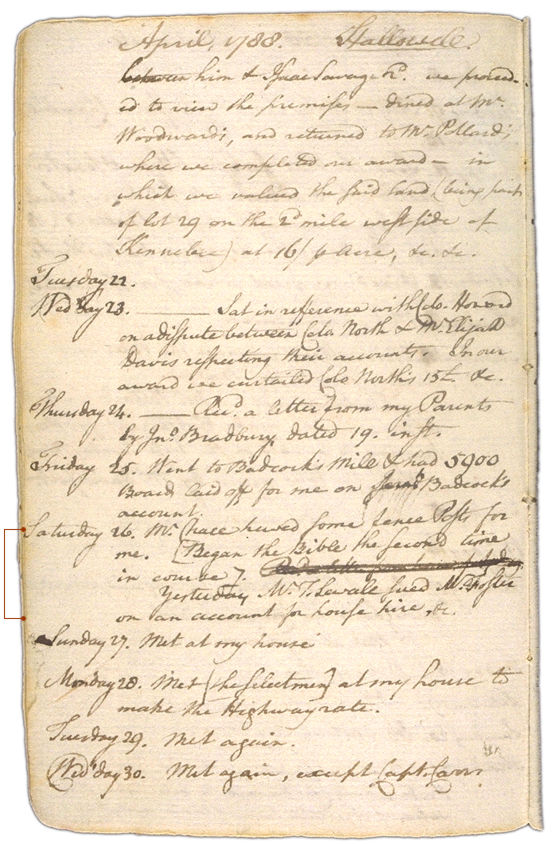 April, 1788. Hallowell.
between him & Isaac Savage 2d. we proceed-
ed to view the premises — dined at Mr.
Woodward's, and returned to Mr. Pollard's
where we completed our award — in
which we valued the said land (being part
of lot 29 on the 2d mile west side of
Kennebec) at 16/ p Acre, &c. &c.
Tuesday 22.
Wed'day 23. — Sat in reference with Colo. Howard
on a dispute between Colo. North & Mr. Elijah
Davis respecting their accounts. In our
award we curtailed Colo North's 15£ &c.
Thursday 24. — Recd. a letter from my Parents
by Jno. Bradbury dated 19. inst.
Friday 25. Went to Badcock's Mile & had 5900
Boards laid off for me on Badcocks
account.
Saturday 26. Mr. Chace hewed some fence Posts for
me. [Began the Bible the second time
in course].
Yesterday Mr. T. Sewall sued Mr. Foster
on an account for house hire, &c.
Sunday 27. Met at my house
Monday 28. Met (the Selectmen) at my house to
make the Highway rate.
Tuesday 29. Met again.
Wed'day 30. Met again, except Capt.